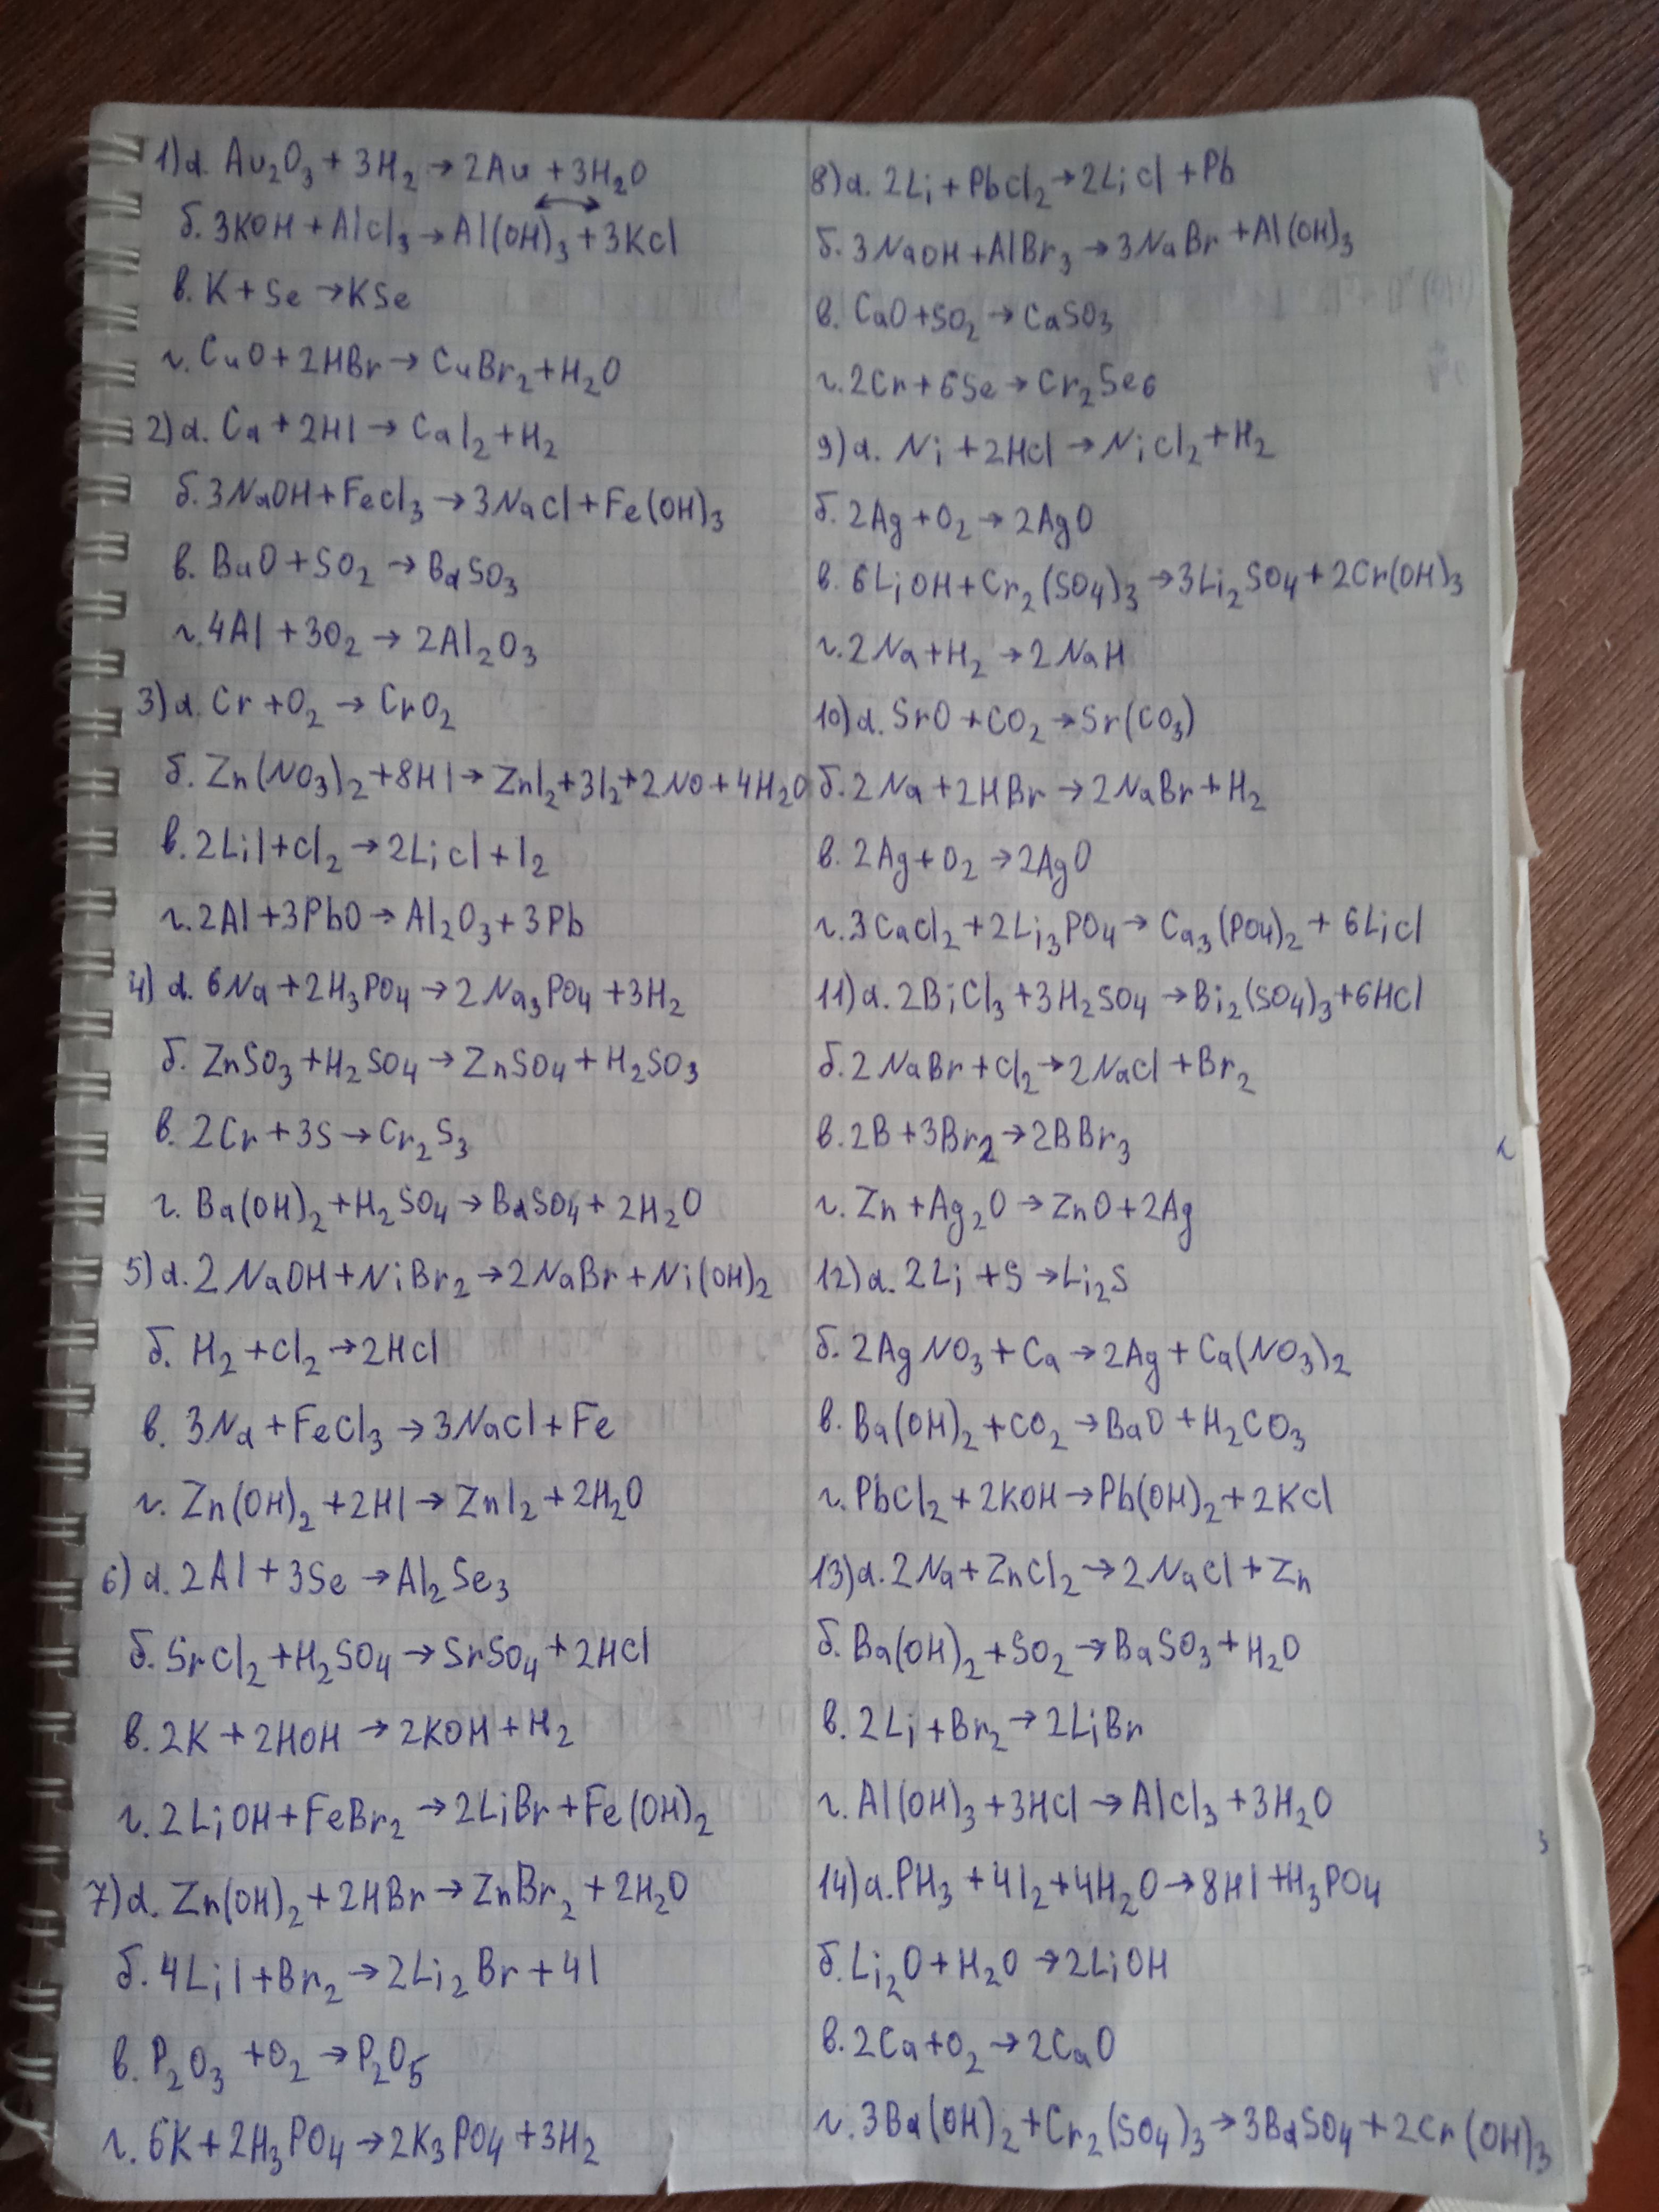 1) а. Au₂O₃ + 3H₂ → 2Au + 3H₂O
б. 3KOH + AlCl₃ → Al(OH)₃ + 3KCl
в. K + Se → KSe
г. CuO + 2HBr → CuBr₂ + H₂O
2) а. Ca + 2HI → CaI₂ + H₂
б. 3NaOH + FeCl₃ → 3NaCl + Fe(OH)₃
в. BaO + SO₂ → BaSO₃
г. 4Al + 3O₂ → 2Al₂O₃
3) а. Cr + O₂ → CrO₂
б. Zn(NO₃)₂ + 8HI → ZnI₂ + 3I₂ + 2NO + 4H₂O
в. 2LiI + Cl₂ → 2LiCl + I₂
г. 2Al + 3PbO → Al₂O₃ + 3Pb
4) а. 6Na + 2H₃PO₄ → 2Na₃PO₄ + 3H₂
б. ZnSO₃ + H₂SO₄ → ZnSO₄ + H₂SO₃
в. 2Cr + 3S → Cr₂S₃
г. Ba(OH)₂ + H₂SO₄ → BaSO₄ + 2H₂O
5) а. 2NaOH + NiBr₂ → 2NaBr + Ni(OH)₂
б. H₂ + Cl₂ → 2HCl
в. 3Na + FeCl₃ → 3NaCl + Fe
г. Zn(OH)₂ + 2HI → ZnI₂ + 2H₂O
6) а. 2Al + 3Se → Al₂Se₃
б. SrCl₂ + H₂SO₄ → SrSO₄ + 2HCl
в. 2K + 2HOH → 2KOH + H₂
г. 2LiOH + FeBr₂ → 2LiBr + Fe(OH)₂
7) а. Zn(OH)₂ + 2HBr → ZnBr₂ + 2H₂O
б. 4LiI + Br₂ → 2Li₂Br + 4I
в. P₂O₃ + O₂ → P₂O₅
г. 6K + 2H₃PO₄ → 2K₃PO₄ + 3H₂
8) а. 2Li + PbCl₂ → 2LiCl + Pb
б. 3NaOH + AlBr₃ → 3NaBr + Al(OH)₃
в. CaO + SO₂ → CaSO₃
г. 2Cr + 6Se → Cr₂Se₆
9) а. Ni + 2HCl → NiCl₂ + H₂
б. 2Ag + O₂ → 2AgO
в. 6LiOH + Cr₂(SO₄)₃ → 3Li₂SO₄ + 2Cr(OH)₃
г. 2Na + H₂ → 2NaH
10) а. SrO + CO₂ → Sr(CO₃)
б. 2Na + 2HBr → 2NaBr + H₂
в. 2Ag + O₂ → 2AgO
г. 3CaCl₂ + 2Li₃PO₄ → Ca₃(PO₄)₂ + 6LiCl
11) а. 2BiCl₃ + 3H₂SO₄ → Bi₂(SO₄)₃ + 6HCl
б. 2NaBr + Cl₂ → 2NaCl + Br₂
в. 2B + 3Br₂ → 2BBr₃
г. Zn + Ag₂O → ZnO + 2Ag
12) а. 2Li + S → Li₂S
б. 2AgNO₃ + Ca → 2Ag + Ca(NO₃)₂
в. Ba(OH)₂ + CO₂ → BaO + H₂CO₃
г. PbCl₂ + 2KOH → Pb(OH)₂ + 2KCl
13) а. 2Na + ZnCl₂ → 2NaCl + Zn
б. Ba(OH)₂ + SO₂ → BaSO₃ + H₂O
в. 2Li + Br₂ → 2LiBr
г. Al(OH)₃ + 3HCl → AlCl₃ + 3H₂O
14) а. PH₃ + 4I₂ + 4H₂O → 8HI + H₃PO₄
б. Li₂O + H₂O → 2LiOH
в. 2Ca + O₂ → 2CaO
г. 3Ba(OH)₂ + Cr₂(SO₄)₃ → 3BaSO₄ + 2Cr(OH)₃